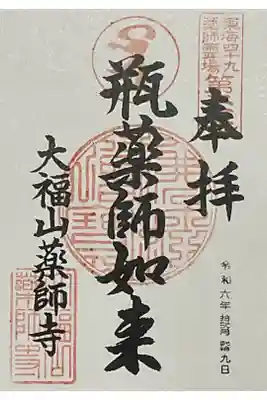 東海四十九
薬師霊場第
奉拝
瓶薬師如来
大福山薬師寺
令和六年 九日